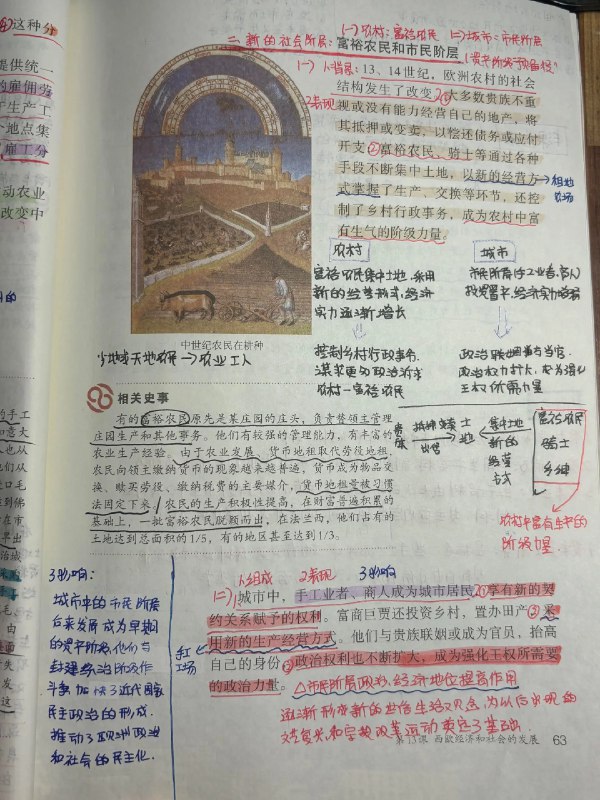 这种分
提供统一
的雇佣劳
于生产工
个地点集
雇工分
动农业
改变中
(一)农村:富裕农民 (二)城市:市民阶层
二、新的社会阶层:富裕农民和市民阶层
(资产阶级"预备役")
(一) 1、背景:13、14世纪,欧洲农村的社会
结构发生了改变。①大多数贵族不重
2表现
视或没有能力经营自己的地产,将
其抵押或变卖,以偿还债务或应付
开支;②富裕农民、骑士等通过各种
手段不断集中土地,以新的经营方
→租地农场
式掌握了生产、交换等环节,还控
制了乡村行政事务,成为农村中富
有生气的阶级力量。
农村
城市
富裕农民集中土地,采用
新的经营形式,经济
实力逐渐增长
市民阶层的工业者、商人
投资置产,经济实力增强
控制乡村行政事务,
谋求更多政治诉求
农村—富裕农民
政治联姻或当官,
政治权力扩大,成为强化
王权所需力量
中世纪农民在耕种
少地或无地农民→农业工人
相关史事
有的富裕农民原先是某庄园的庄头,负责替领主管理
庄园生产和其他事务。他们有较强的管理能力,有丰富的
农业生产经验。由于农业发展、货币地租取代劳役地租,
农民向领主缴纳货币的现象越来越普遍,货币成为物品交
换、赎买劳役、缴纳税费的主要媒介,货币地租受被习惯
法固定下来,农民的生产积极性提高,在财富普遍积累的
基础上,一批富裕农民脱颖而出,在法兰西,他们占有的
土地达到总面积的1/5,有的地区甚至达到1/3。
贵族
抵押变卖
土地
集中土地
新的经营方式
富裕农民
骑士
乡绅
农村中富有生气的
阶级力量
1、组成 2表现 3影响
(二)城市中,手工业者、商人成为城市居民,①享有新的契
约关系赋予的权利。富商巨贾还投资乡村,置办田产,②采
用新的生产经营方式。他们与贵族联姻或成为官员,抬高
手工场
自己的身份,③政治权利也不断扩大,成为强化王权所需要
的政治力量。△市民阶层政治、经济地位提高作用
逐渐形成新的世俗生活观念,为以后出现的
文艺复兴和宗教改革运动奠定了基础
3影响:
城市中的市民阶层
后来发展成为早期
的资产阶级,他们与
封建统治阶级作
斗争加快了近代国家
民主政治的形成,
推动了欧洲政治
和社会的民主化.
第13课 西欧经济和社会的发展 63